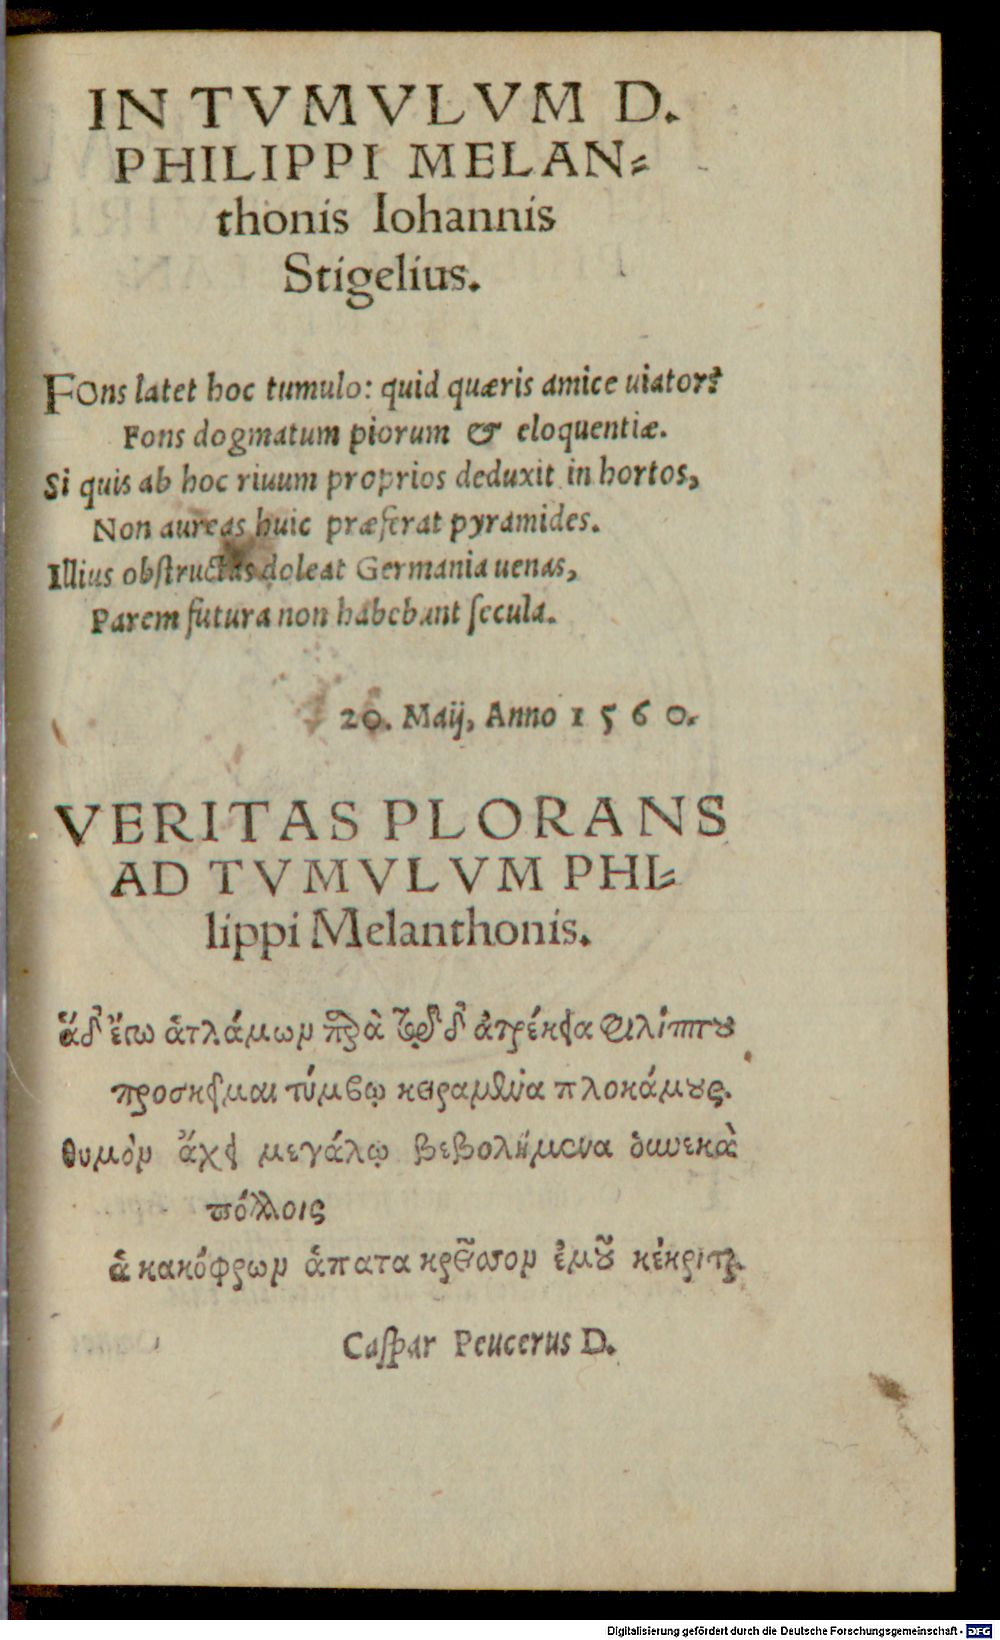 IN TVMVLVM D.
PHILIPPI MELAN⸗
thonis Iohannis
Stigelius.
FOns latet hoc tumulo: quid quæris amice uiator?
Fons dogmatum piorum & eloquentiæ.
Si quis ab hoc riuum proprios deduxit in hortos,
Non aureas huic præferat pyramides.
Illius obſtructas doleat Germania uenas,
Parem futura non habebunt ſecula.
20. Maij, Anno 1560.
VERITAS PLORANS
AD TVMVLVM PHI⸗
lippi Melanthonis.
ἅδ' ἐγὼ ἁ τλάμων παρὰ τῷδ' ἀτρέκεια Φιλίππου
προσκεῖμαι τύμβῳ κειραμένα πλοκάμους.
θυμὸν ἄχει μεγάλῳ βεβολημένα οὕνεκα
πολλοῖς
ἁ κακόφρων ἀπάτα κρεῖσσον ἐμοῦ κέκριται.
Caſpar Peucerus D.
Digitalisierung gefördert durch die Deutsche Forschungsgemeinschaft - DFG